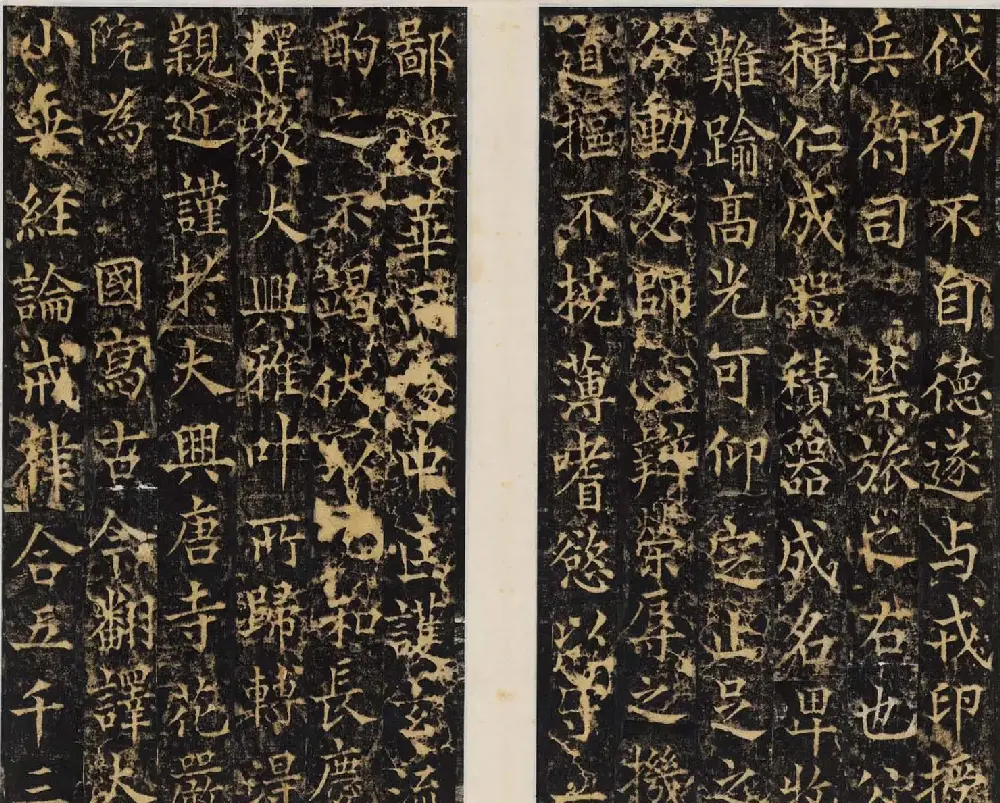 伐功不自德遂占戎印授
兵符司禁旅之右也公
積仁成器積器成名卑牧
難踰高光可仰定止足之
分動必即心辨榮辱之機
道摳不撓薄嗜慾以守
鄙浮華而
中匡護玄流
酌之不竭伏以
和長慶
釋教大興雅叶所歸轉得
親近謹於大興唐寺花嚴
院為國寫古今翻譯大
小乗經論戒律合五千三